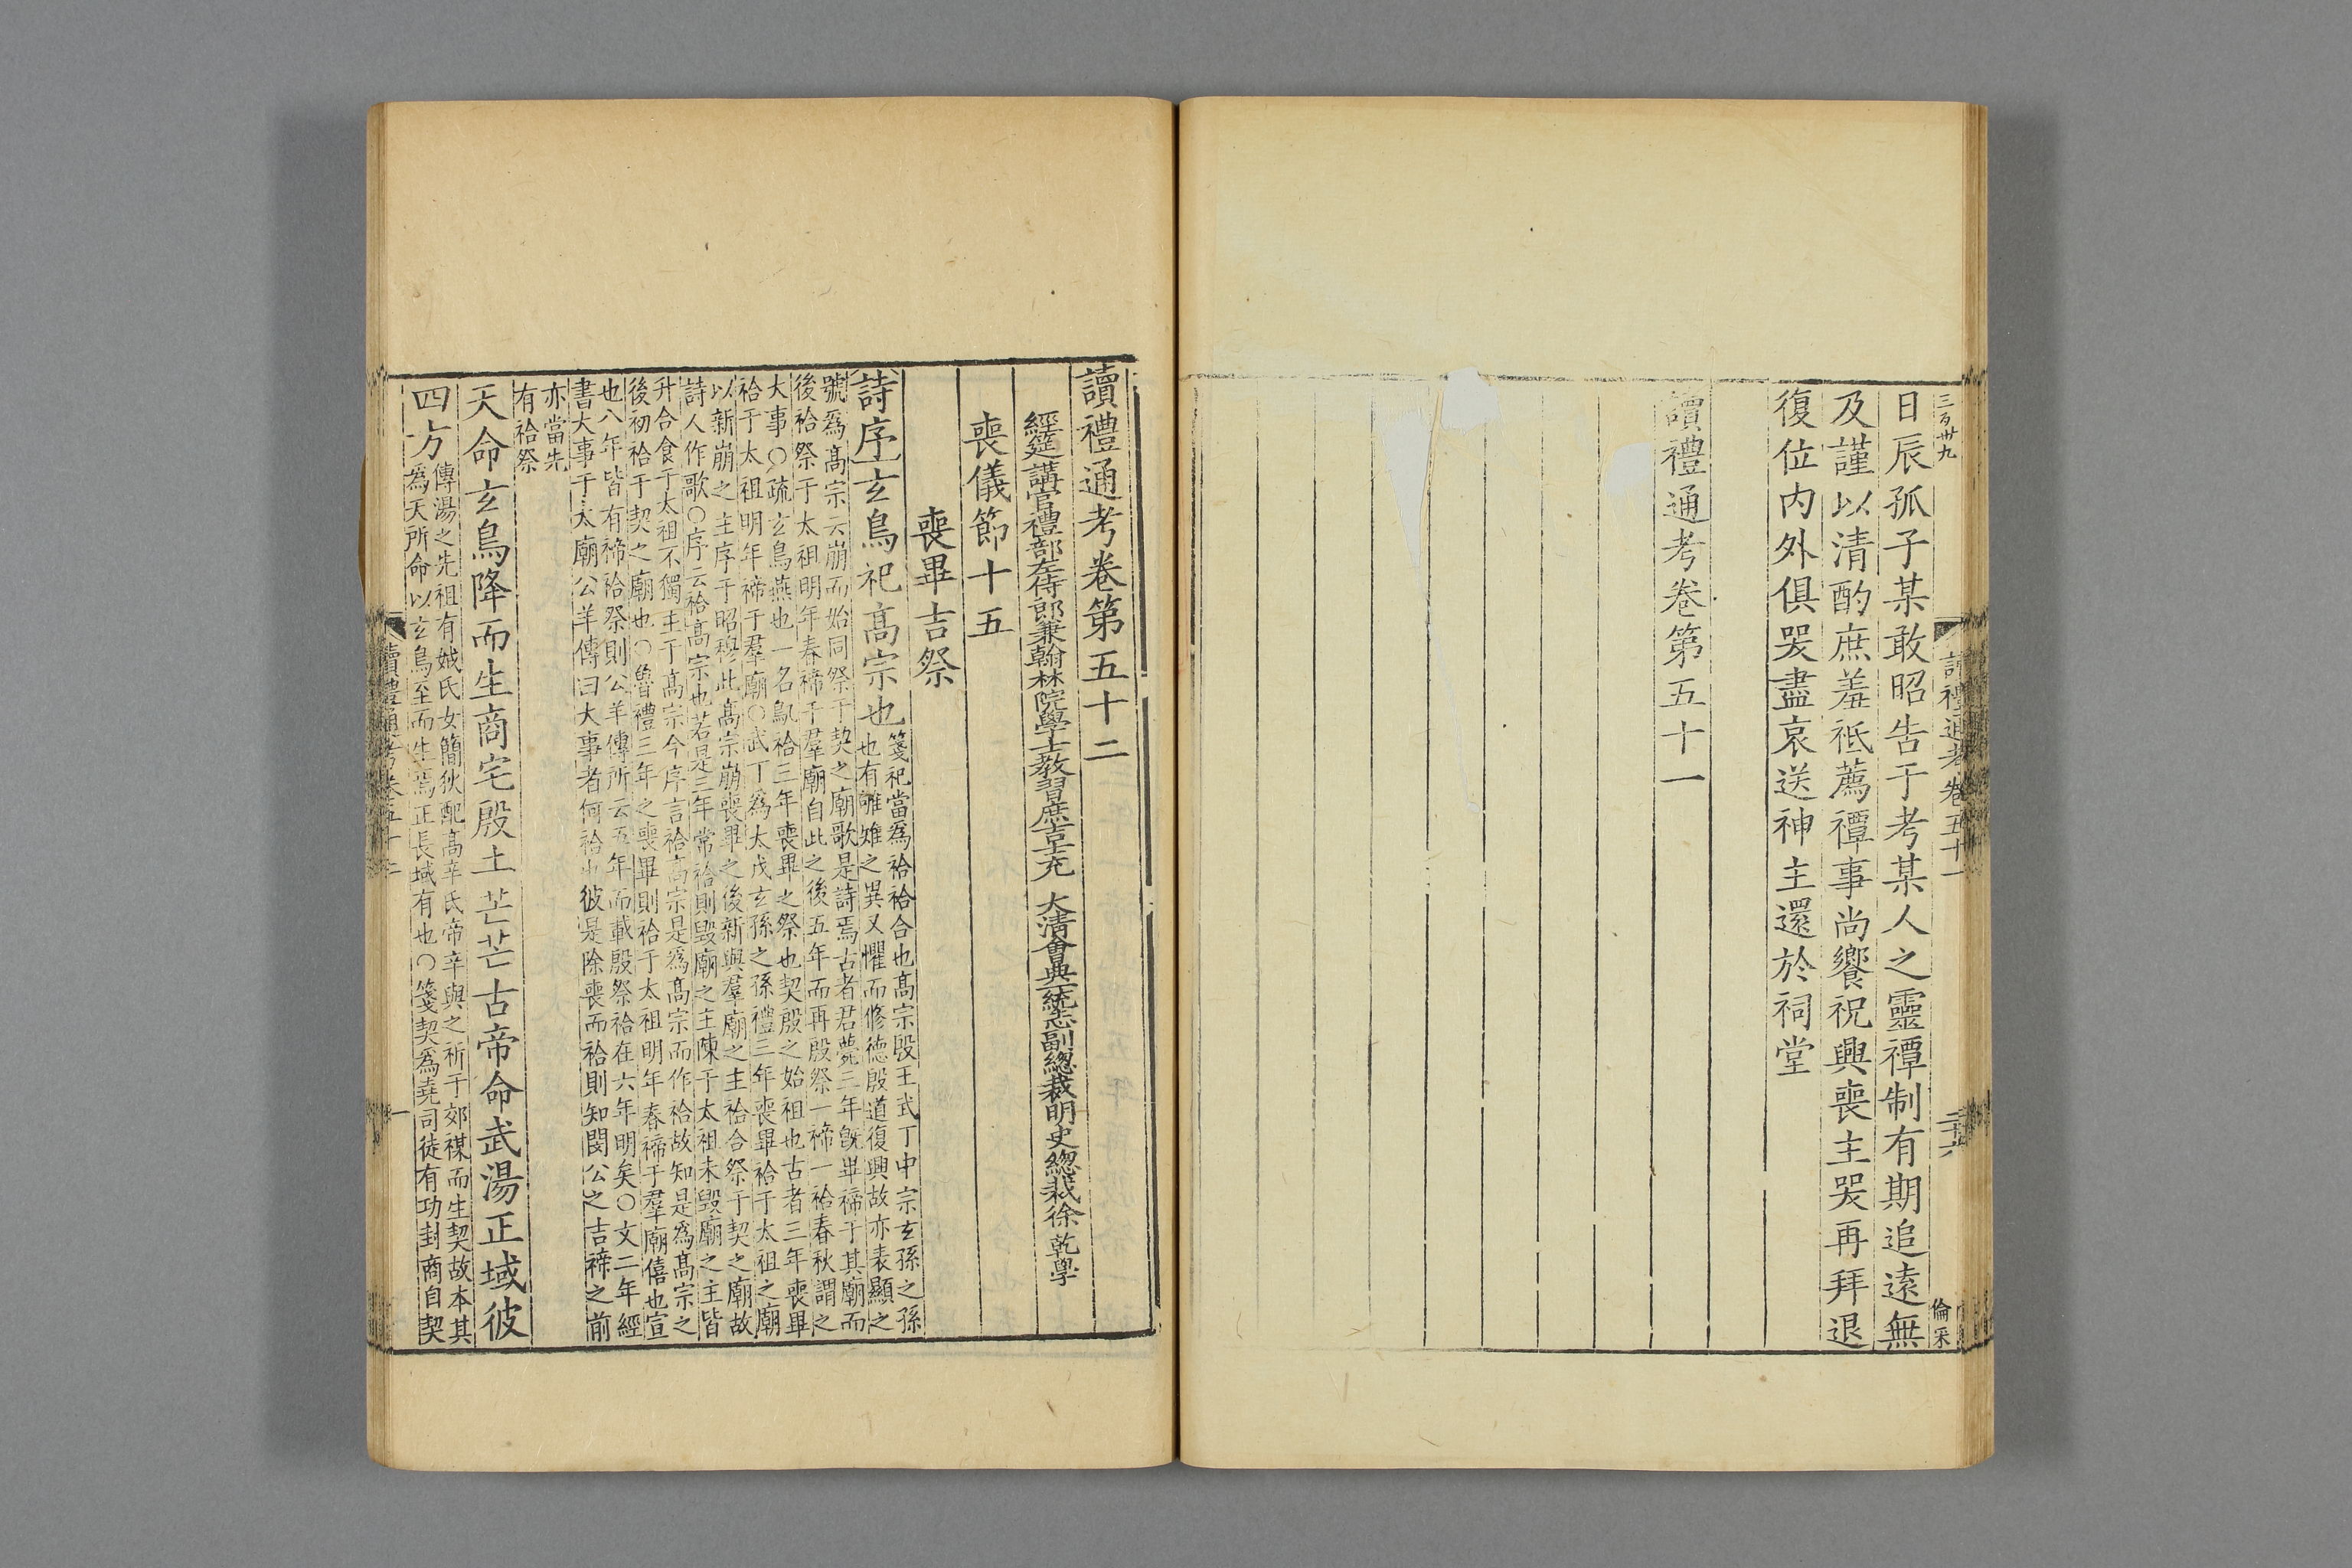 三百卅九
讀禮通考卷五十一
二十六
倫采
日辰孤子某敢昭告于考某人之靈禫制有期追遠無
及謹以清酌庶羞祗薦禫事尚饗祝興喪主哭再拜退
復位內外俱哭盡哀送神主還於祠堂
讀禮通考卷第五十一
讀禮通考卷第五十二
經筵講官禮部左侍郎兼翰林院學士教習庶吉士充 大清會典一統志副總裁明史總裁徐乾學
喪儀節十五
喪畢吉祭
詩序玄鳥祀高宗也
箋祀當爲祫祫合也高宗殷王武丁中宗玄孫之孫
也有雊雉之異又懼而修德殷道復興故亦表顯之
號爲高宗云崩而始同祭于契之廟歌是詩焉古者君薨三年旣畢禘于其廟而
後祫祭于太祖明年春禘于羣廟自此之後五年而再殷祭一禘一祫春秋謂之
大事○疏玄鳥燕也一名鳦祫三年喪畢之祭也契殷之始祖也古者三年喪畢
祫于太祖明年禘于羣廟○武丁爲太戊玄孫之孫禮三年喪畢祫于太祖之廟
以新崩之主序于昭穆此高宗崩喪畢之後新與羣廟之主祫合祭于契之廟故
詩人作歌○序云祫高宗也若是三年常祫則毀廟之主陳于太祖未毀廟之主皆
升合食于太祖不獨主于高宗今序言祫高宗是爲高宗而作祫故知是爲高宗之
後初祫于契之廟也○魯禮三年之喪畢則祫于太祖明年春禘于羣廟僖也宣
也八年皆有禘祫祭則公羊傳所云五年而載殷祭祫在六年明矣○文二年經
書大事于太廟公羊傳曰大事者何祫也彼是除喪而祫則知閔公之吉禘之前
亦當先
有祫祭
天命玄鳥降而生商宅殷土芒芒古帝命武湯正域彼
四方
傳湯之先祖有娀氏女簡狄配高辛氏帝辛與之祈于郊禖而生契故本其
爲天所命以玄鳥至而生焉正長域有也○箋契爲堯司徒有功封商自契
讀禮通考卷五十二
一